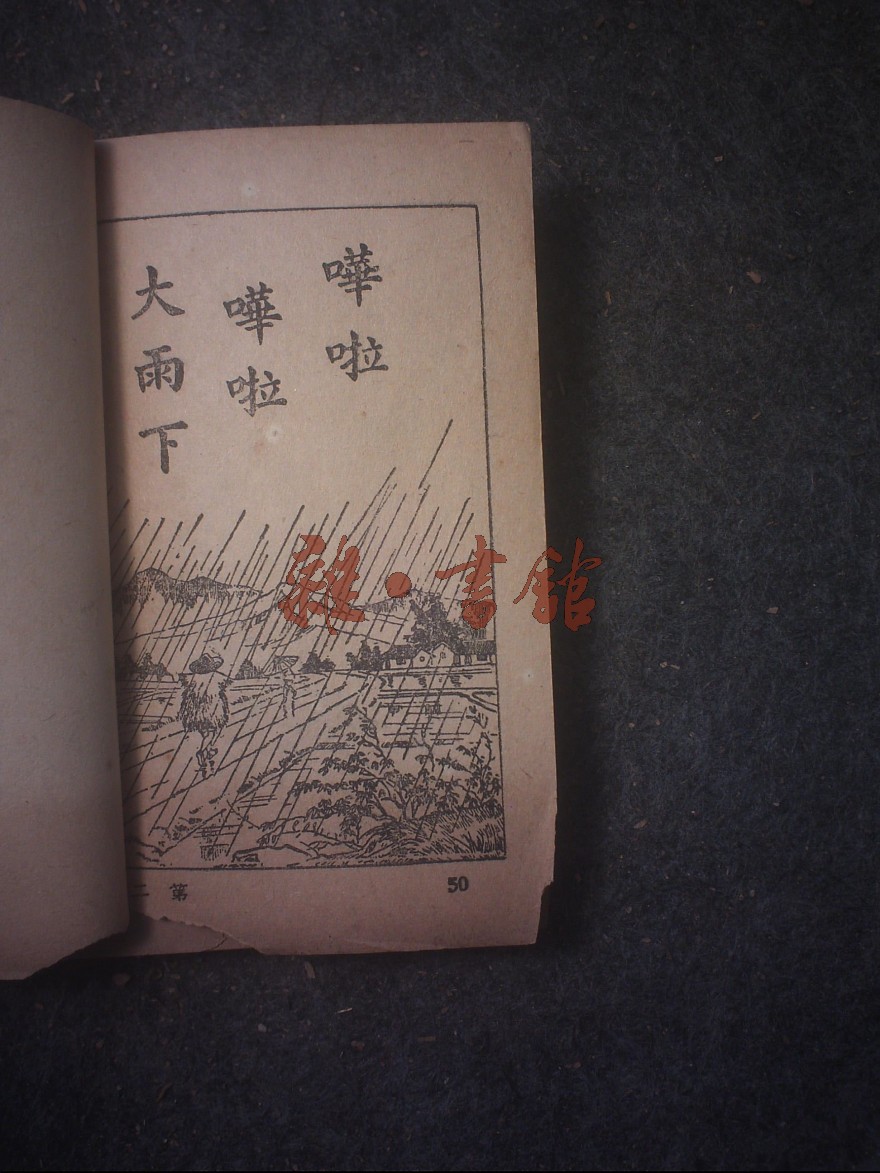 嘩啦
嘩啦
大雨下
第二
50
雜·書館